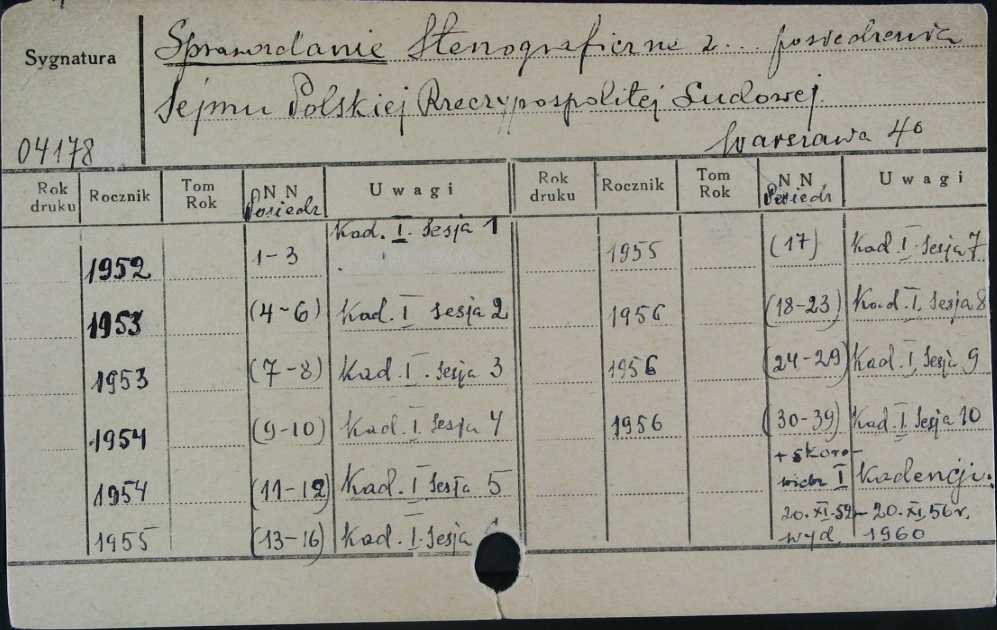 Sygnatura
Sprawozdanie Stenograficzne z... posiedzenia
Sejmu Polskiej Rzeczypospolitej Ludowej.
04178
Warszawa 4°
Rok druku Rocznik Tom Rok N N Posiedz Uwagi Rok druku Rocznik Tom Rok N N Posiedz Uwagi
1952 1-3 Kad. I. Sesja 1 1955 (17) Kad. I. Sesja 7
1953 (4-6) Kad. I Sesja 2 1956 (18-23) Kad. I. Sesja 8
1953 (7-8) Kad. I. Sesja 3 1956 (24-29) Kad. I. Sesja 9
1954 (9-10) Kad. I. Sesja 4 1956 (30-39) Kad. I. Sesja 10
1954 (11-12) Kad. I Sesja 5 + skorowidz I Kadencji.
1955 (13-16) Kad. I. Sesja 20.XI.52 - 20.XI.56r. wyd. 1960